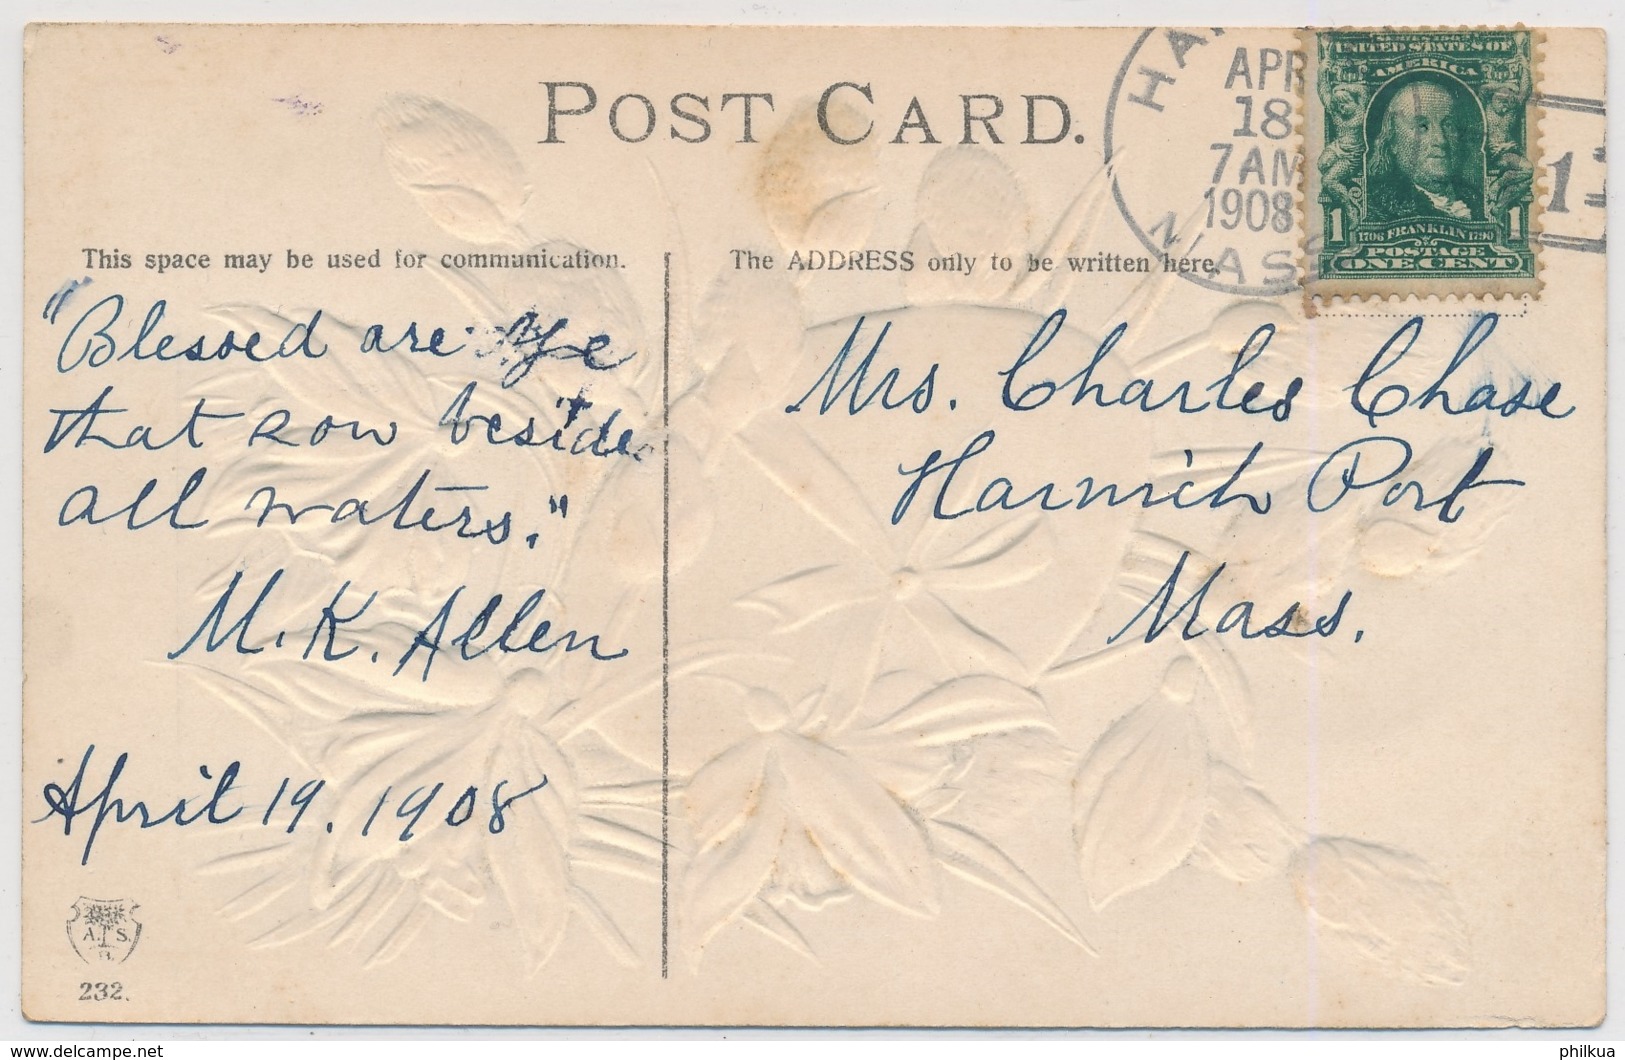 POST CARD.
HA
APR
18
7 AM
1908
MASS
11
UNITED STATES OF
AMERICA
1 1
1706 FRANKLIN 1790
POSTAGE
ONE CENT
This space may be used for communication.
The ADDRESS only to be written here.
"Blessed are ye
that sow beside
all waters."
M. K. Allen
April 19. 1908
Mrs. Charles Chase
Harwich Port
Mass.
A. S.
B.
232.
delcampe.net
philkua